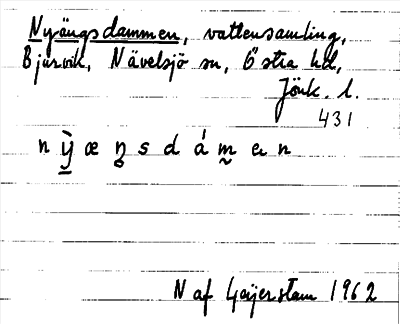 Nyängsdammen, vattensamling,
Bjurvik, Nävelsjö sn, Östra hd,
Jönk. l.
431
n ỳ̠ æ ŋ̥ s d á m̰ ə n
N af Geijerstam 1962